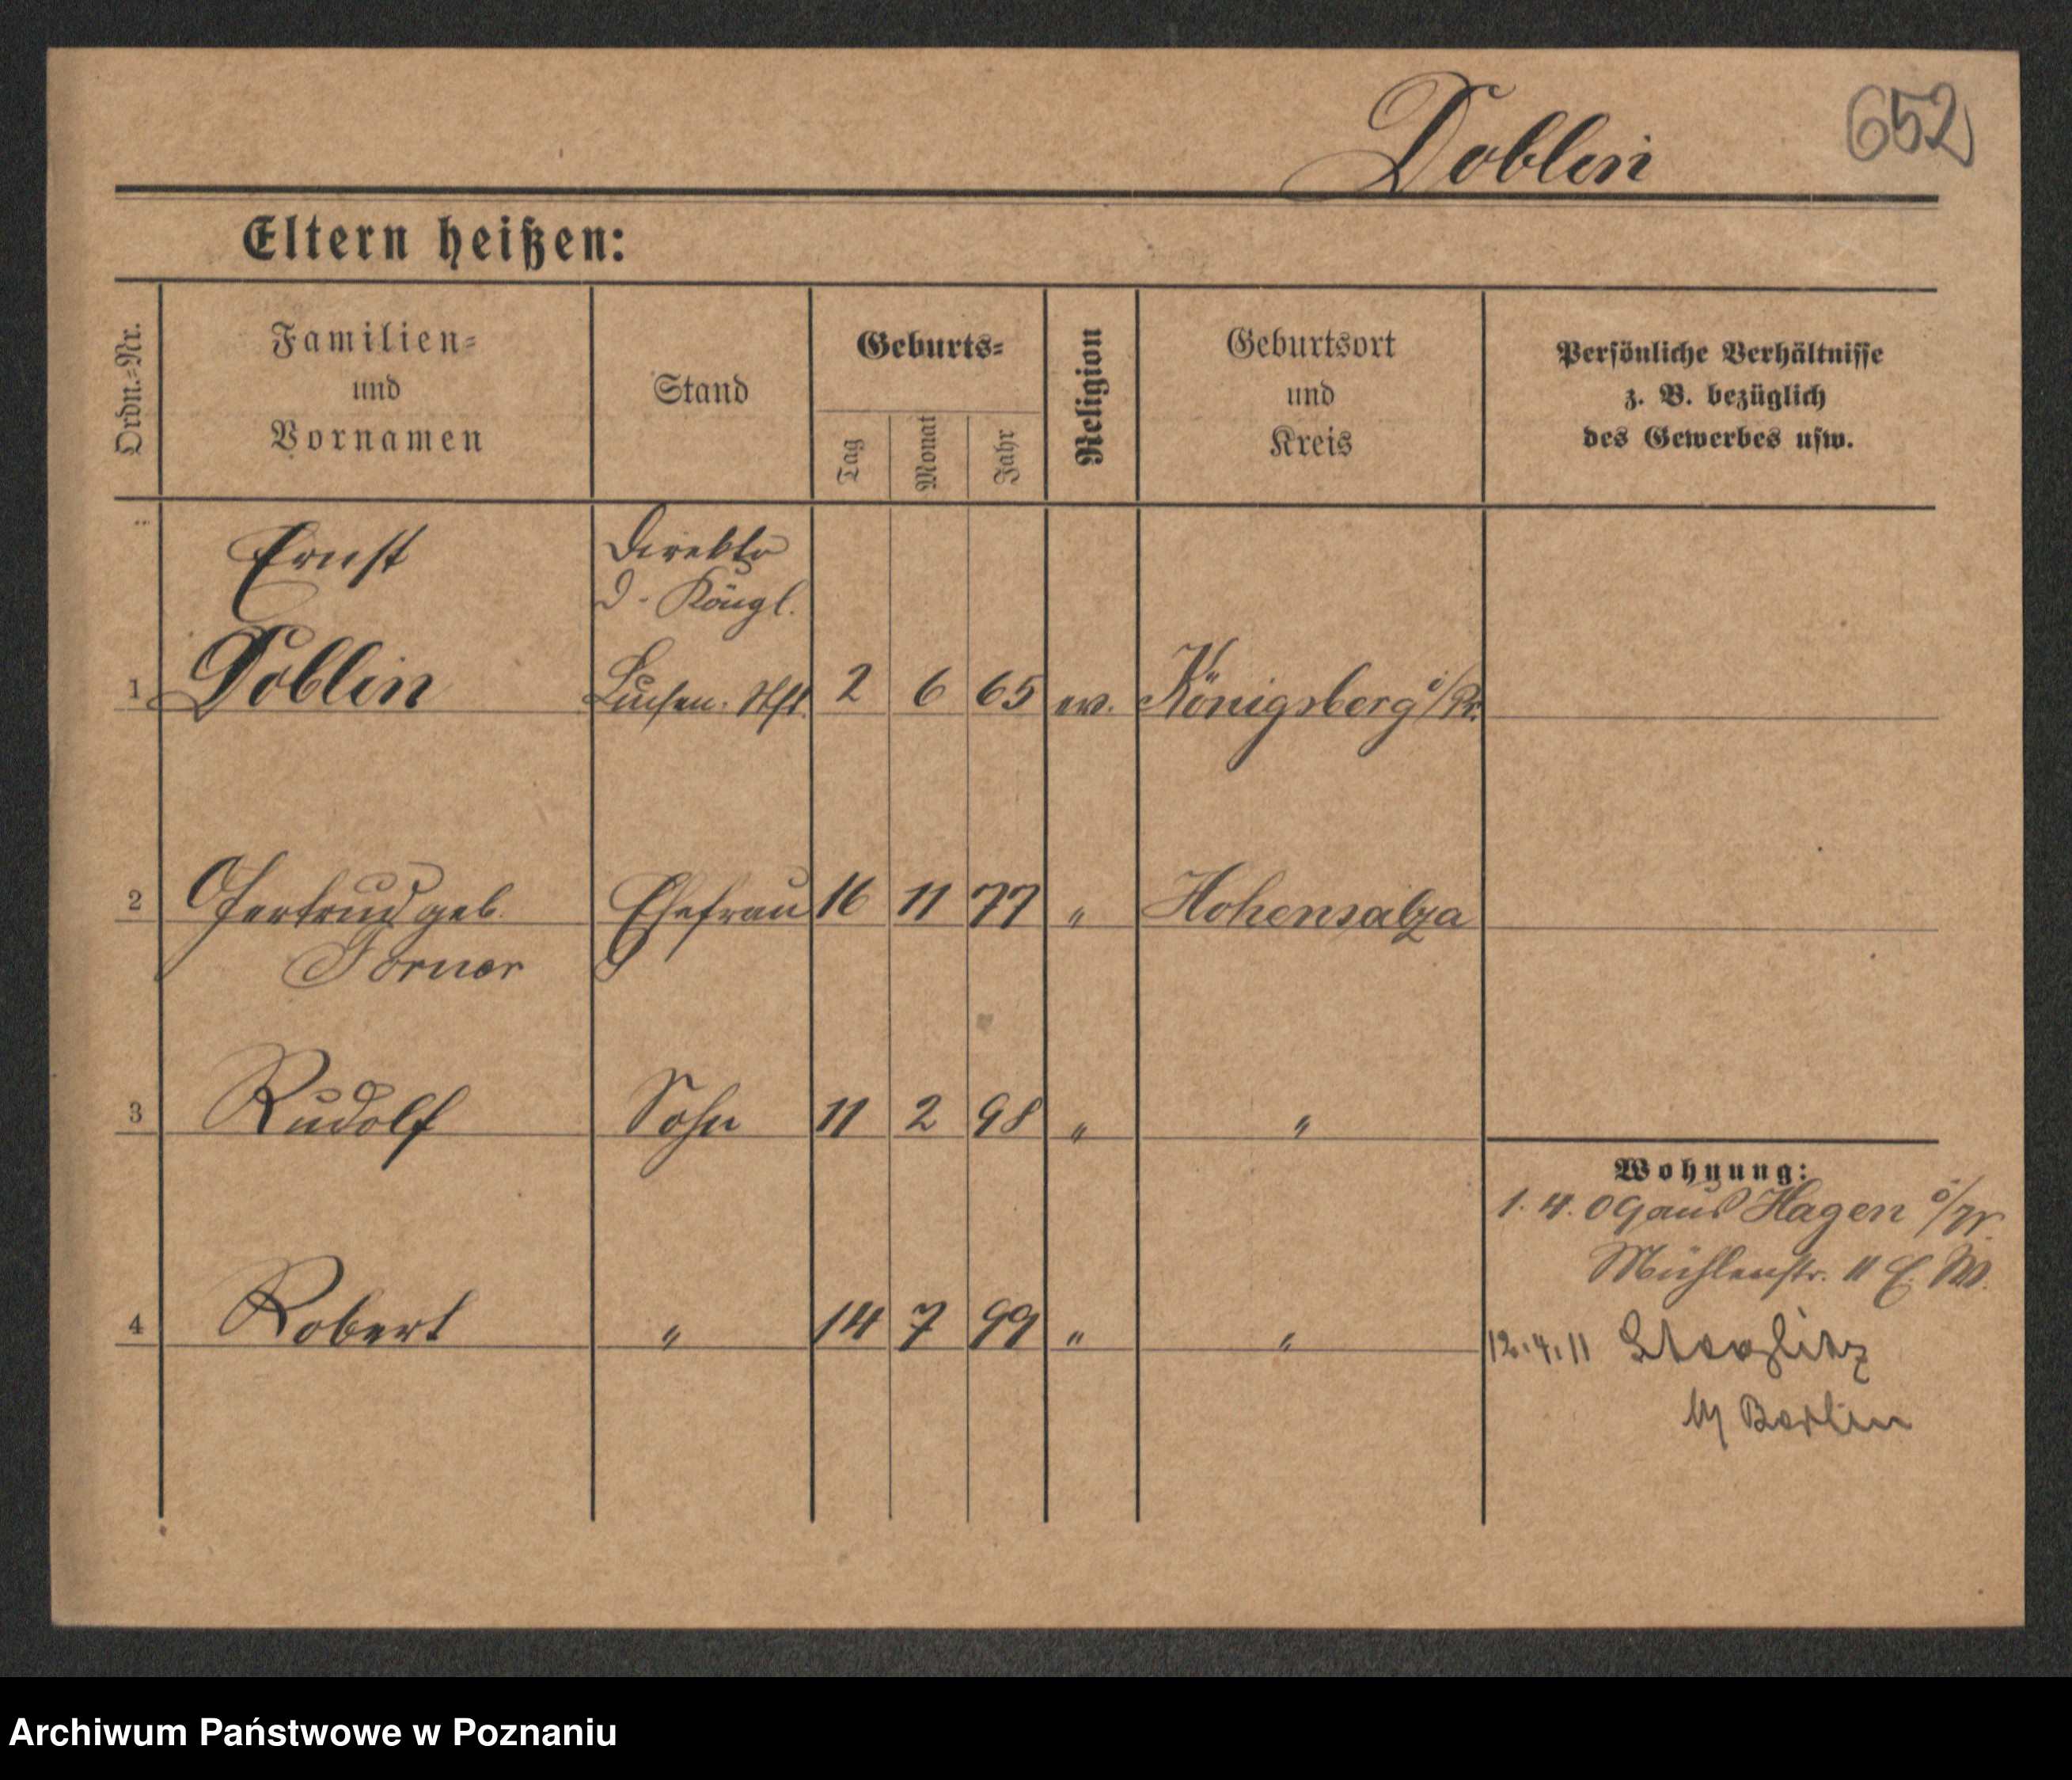 Doblin
652
Eltern heißen:
Ordn.-Nr.
Familien-
und
Vornamen
Stand
Geburts-
Tag
Monat
Jahr
Religion
Geburtsort
und
Kreis
Persönliche Verhältnisse
z. B. bezüglich
des Gewerbes usw.
Ernst
Direktr
d. Köngl.
1 Doblin Luisen. Stft. 2 6 65 ev. Königsberg i/Pr.
2 Gertrud geb. Ehefrau 16 11 77 " Hohensalza
Forner
3 Rudolf Sohn 11 2 98 " "
Wohnung:
1. 4. 09 aus Hagen i/W.
Mühlenstr. 11
4 Robert " 14 7 99 " "
12.4.11 Steglitz
Berlin
Archiwum Państwowe w Poznaniu